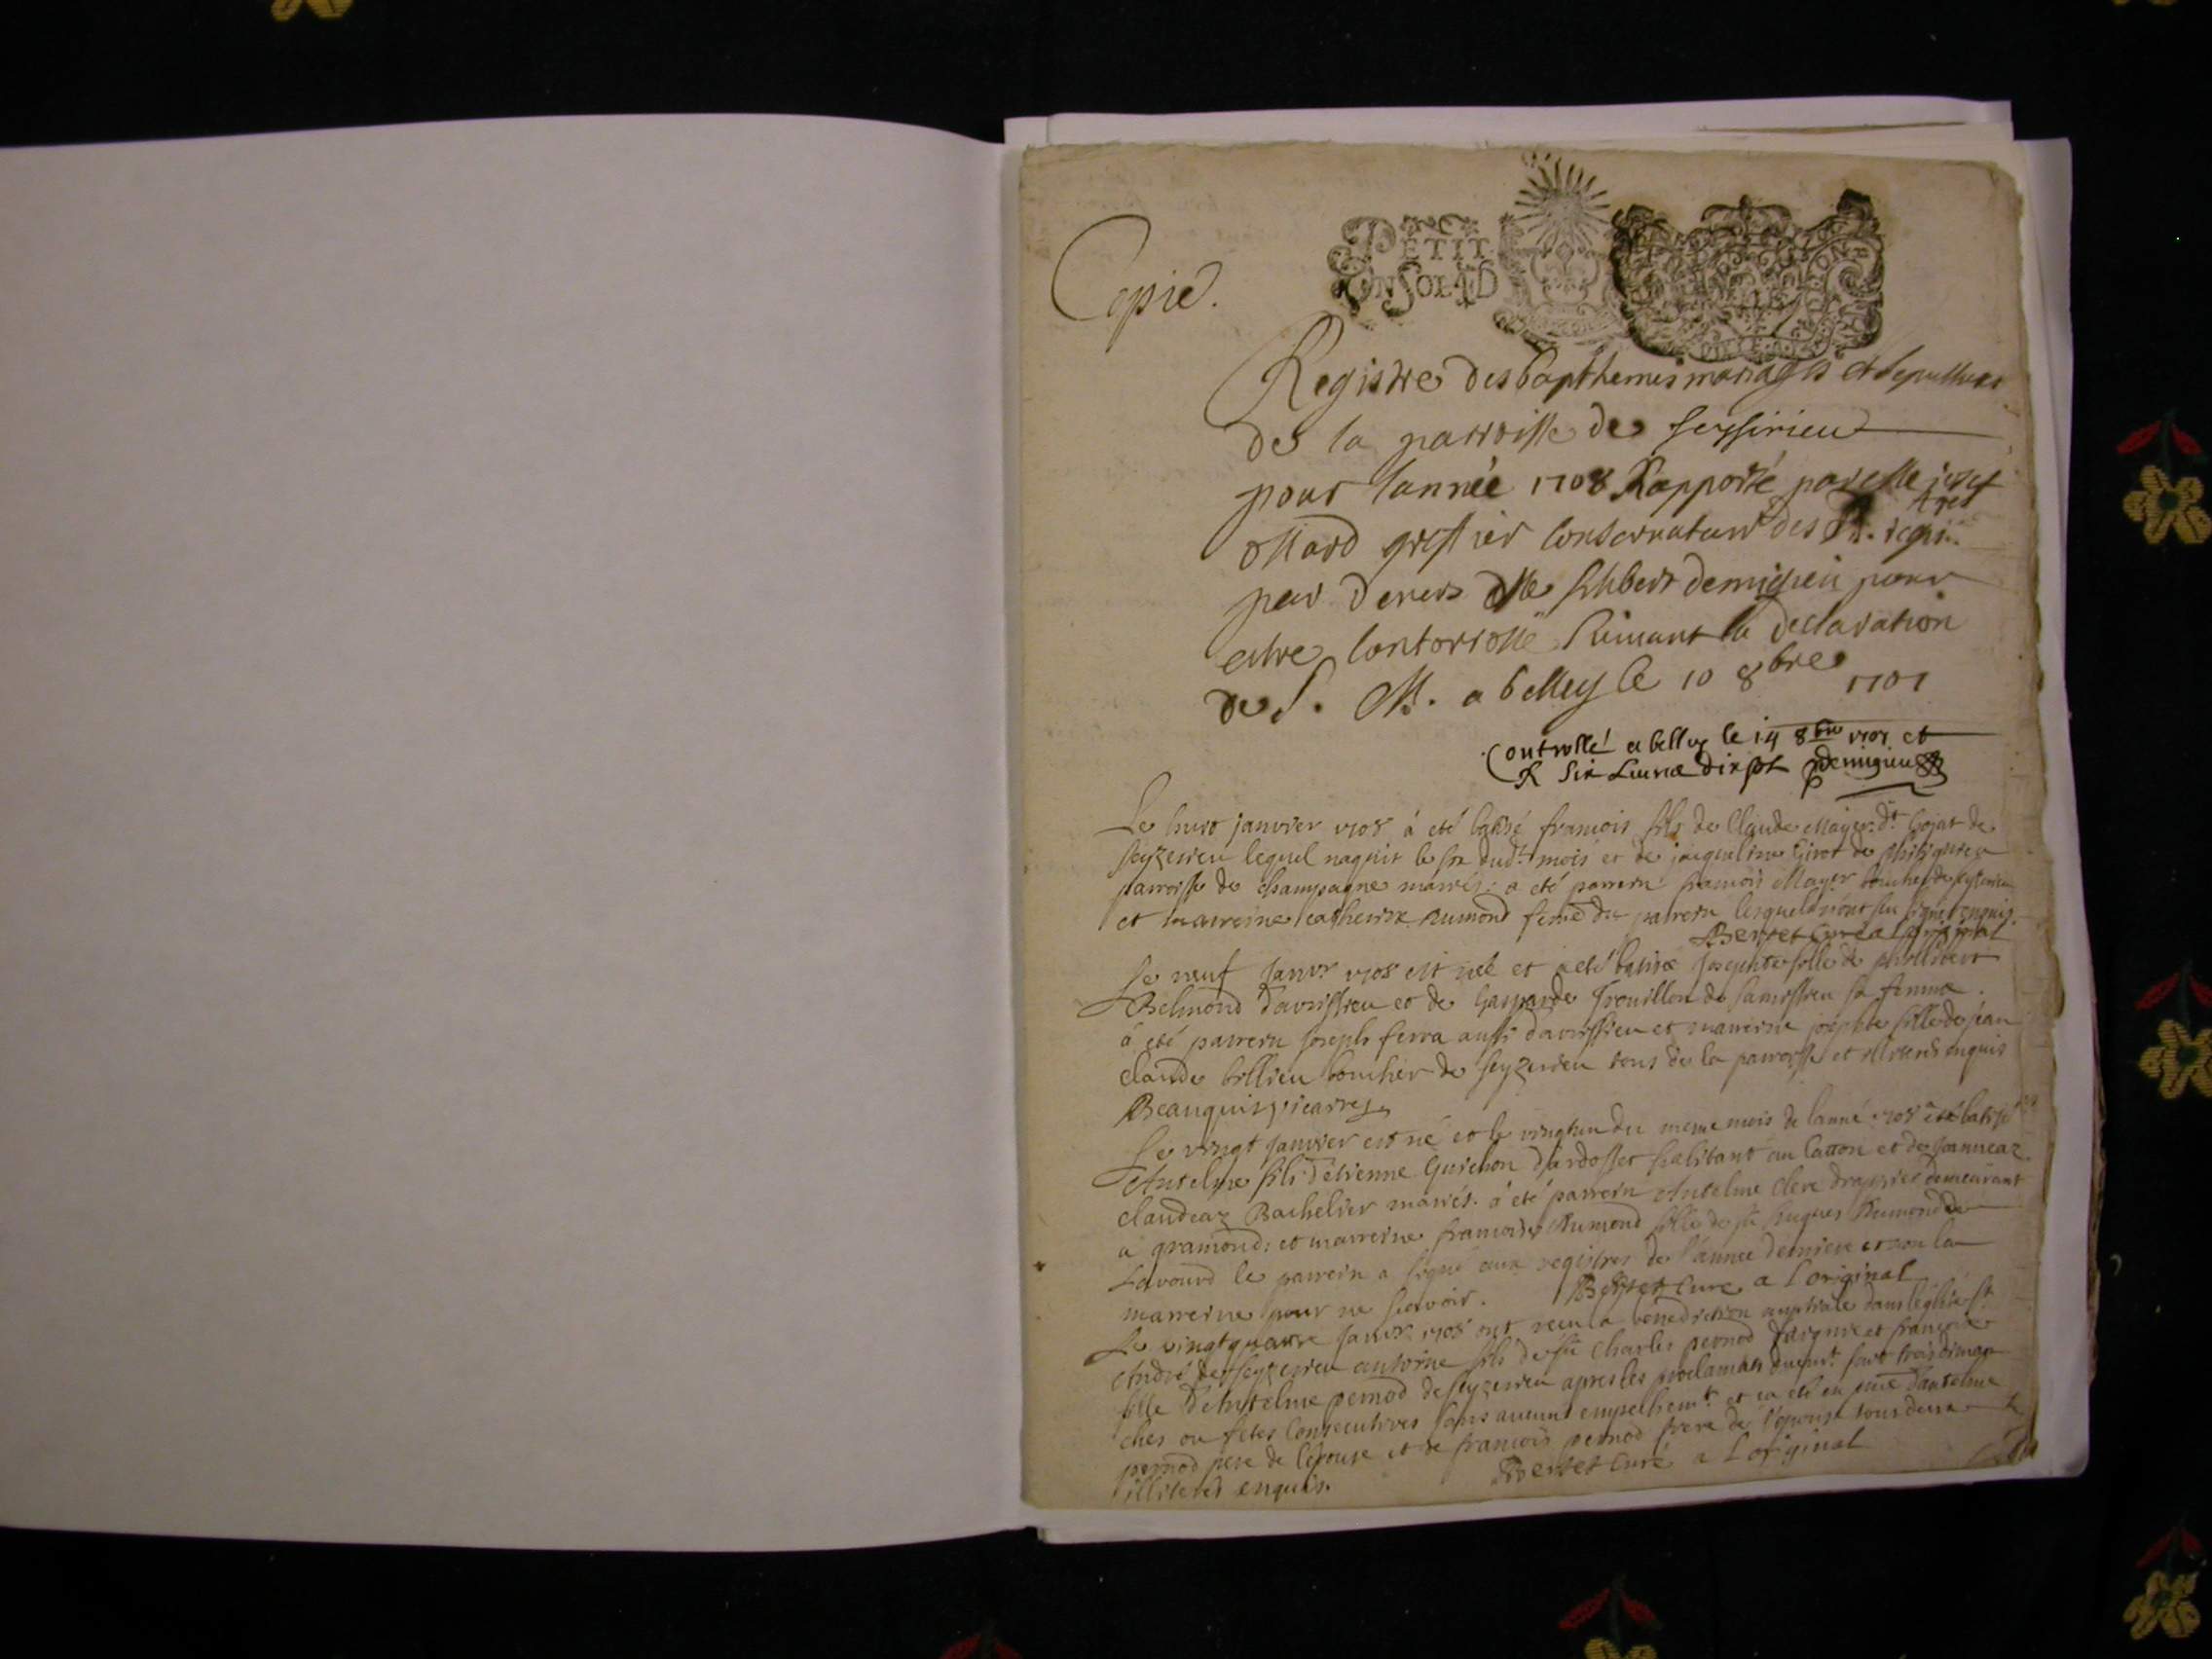 Copie.
PETIT
UN SOL 4 D
Registre des bapthemes mariages et sepultures
de la parroisse de seyssirieu
pour lannée 1708 Rapporté par
greffier Conservateur des
par devers demigieu pour
estre Controllé suivant la declaration
de S. M. a belley le 10 8bre 1707
Controllé a belley le 14 8bre 1707 et
R Six Livres dix sols demigieu
Le huit janvier 1708 à eté batisé francois fils de Claude Mayer dt Cojat de
seyzerieu lequel naquit le six dudt mois et de jaqueline Girot de
parroisse de champagne mariés. a eté parrein francois Mayer boucher de
et marreine catherine Aumond feme du parrein lesquels n'ont sceu signer enquis.
Bertet Curé a Loriginal
Le neuf Janvr 1708 est née et a eté batisée Josephte fille de philibert
Belmond d'avrissieu et de Gasparde Trouillon de sa femme.
à eté parrein Joseph ferra aussi d'avrissieu et marreine josephte fille de jean
claude billieu boucher de seyzerieu tous de la parroisse et illiterés enquis
Beauquis vicaire
Le vingt janvier est né et le vingtun du meme mois de lanné 1708 a eté batisé
Antelme fils d'etienne Guichon d'ardosset habitant au et de Joanneaz
claudeaz Bachelier mariés. a eté parrein Antelme Clerc drappier demeurant
a gramond: et marreine francoise Aumond fille de fû hugues Aumond de
Lavourd le parrein a signé aux registres de l'année derniere et non la
marreine pour ne scavoir. Bertet Curé a Loriginal
Le vingtquatre Janvr 1708 ont receu la benediction nuptiale dans l'eglise St
André de seyzerieu antoine fils de fû Charles pernod et françoise
fille d'Antelme pernod de seyzerieu apres les proclamãns duemt. fait trois diman
ches ou fetes consecutives sans aucuns empechemt. et ca eté en d'antelme
pernod pere de l'epouse et de francois pernod frere de l'epouse tous deux
illiterés enquis. Bertet Curé a Loriginal